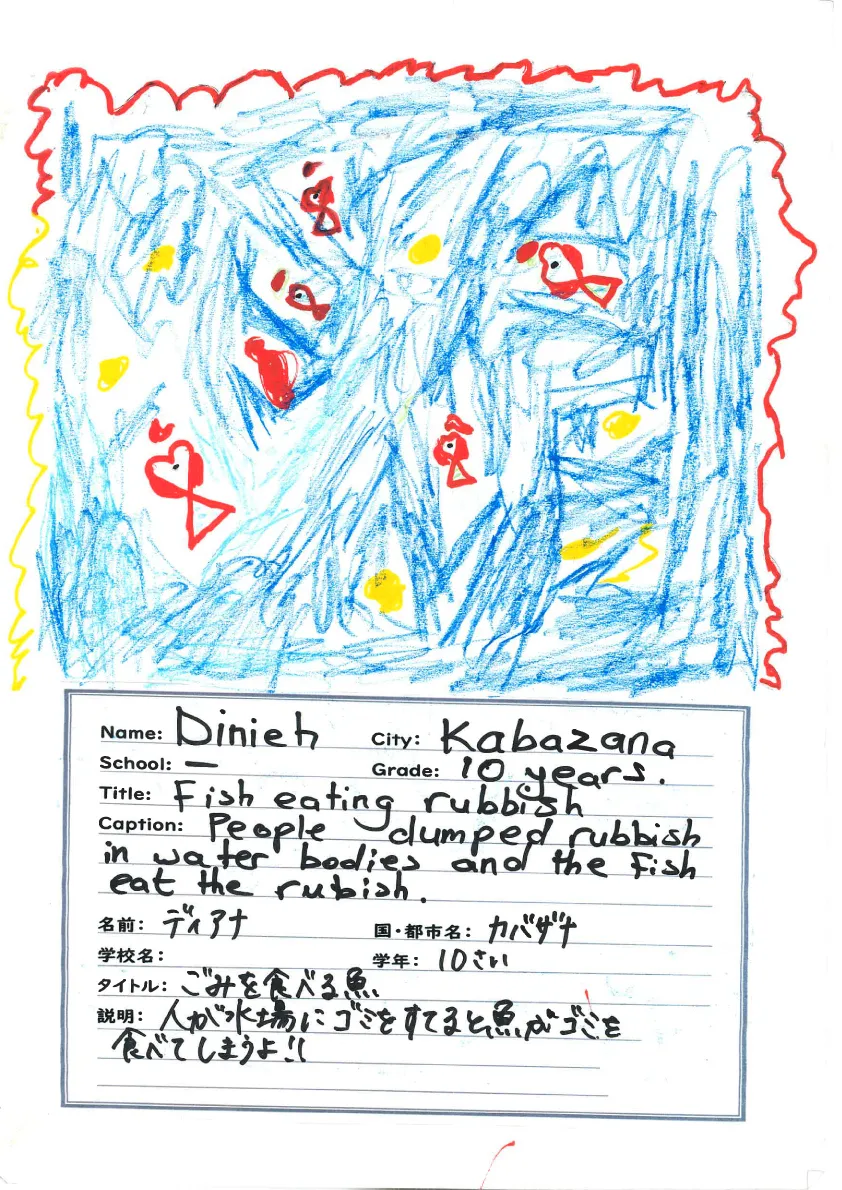 Name: Dinieh City: Kabazana
School: — Grade: 10 years.
Title: Fish eating rubbish
Caption: People dumped rubbish
in water bodies and the fish
eat the rubish.
名前: ディアナ 国・都市名: カバザナ
学校名: 学年: 10さい
タイトル: ごみを食べる魚
説明: 人が水場にゴミをすてると魚がゴミを
食べてしまうよ!!